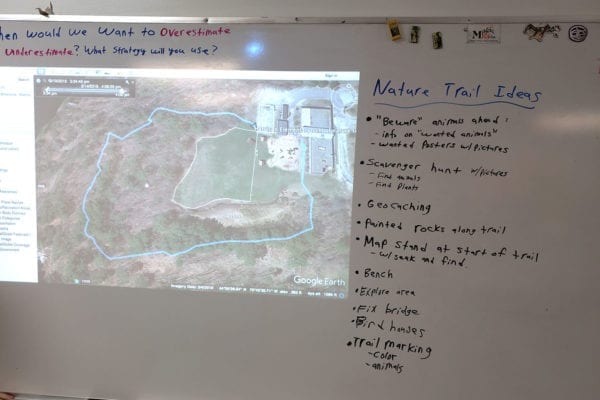 hen would we want to Overestimate
Underestimate? What strategy will you use?
Nature Trail Ideas
• "Beware" animals ahead:
- info on "wanted animals"
- wanted Posters w/pictures
• Scavenger hunt w/pictures
- Find animals
- Find plants
• Geocaching
• Painted rocks along trail
• Map stand at start of trail
- w/ seak and find.
• Bench
• Explore area
• Fix bridge
• Bird houses
• Trail marking
- color
- animals
Google Earth